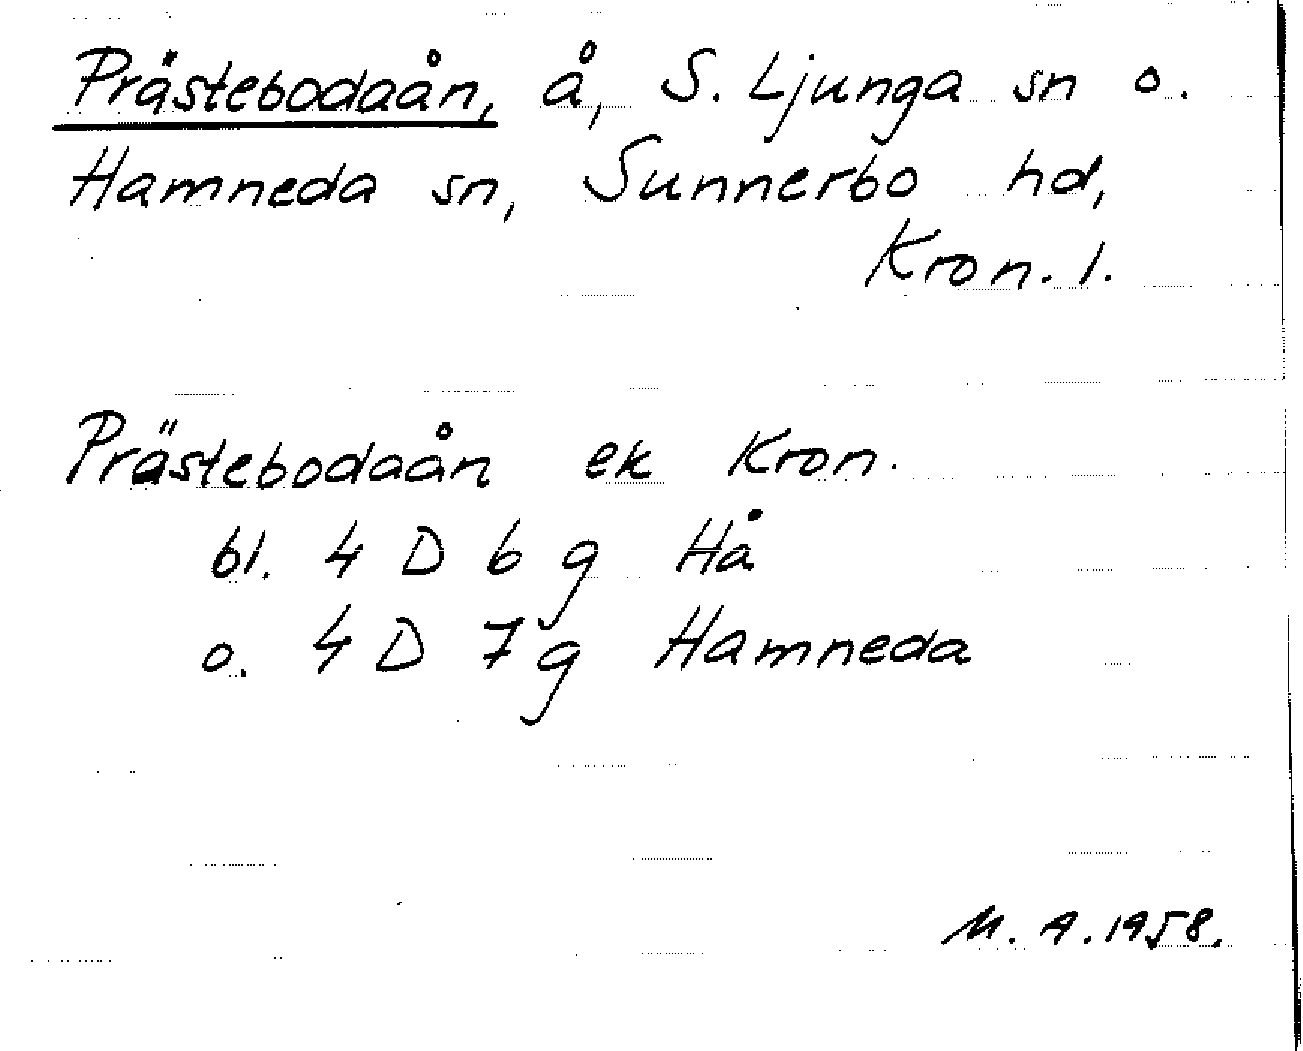 Prästebodaån, å, S. Ljunga sn o.
Hamneda sn, Sunnerbo hd,
Kron. l.
Prästebodaån ek Kron.
bl. 4 D 6 g Hå
o. 4 D 7 g Hamneda
M. A. 1958.